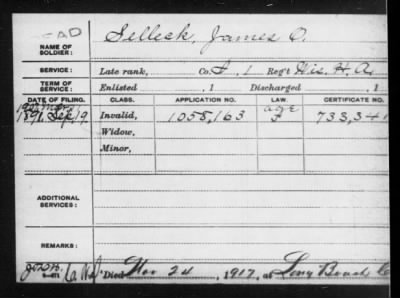 DAD
NAME OF SOLDIER: Selleck, James O.
SERVICE: Late rank, Co. I, 1 Reg't Wis. H. A.
TERM OF SERVICE: Enlisted , 1 Discharged , 1
DATE OF FILING. CLASS. APPLICATION NO. LAW. CERTIFICATE NO.
age
1891, Sep 19 Invalid, 1058,163 F 733,34
Widow,
Minor,
ADDITIONAL SERVICES:
REMARKS:
Died 24 , 1917, at Long Beach